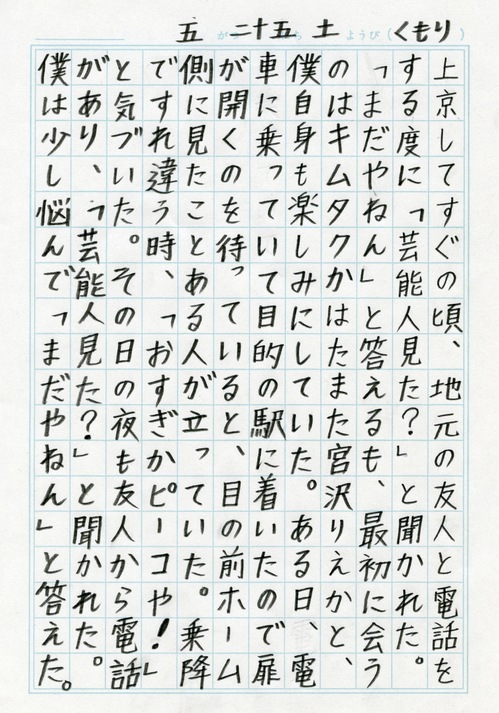 五 二十五 土 ようび(くもり)
上京してすぐの頃、地元の友人と電話を
する度に「芸能人見た?」と聞かれた。
「まだやねん」と答えるも、最初に会う
のはキムタクかはたまた宮沢りえかと、
僕自身も楽しみにしていた。ある日、電
車に乗っていて目的の駅に着いたので扉
が開くのを待っていると、目の前ホーム
側に見たことある人が立っていた。乗降
ですれ違う時、「おすぎかピーコや!」
と気づいた。その日の夜も友人から電話
があり、「芸能人見た?」と聞かれた。
僕は少し悩んで「まだやねん」と答えた。